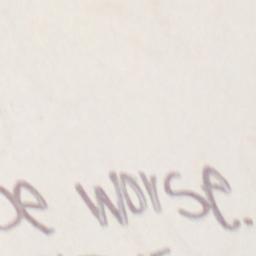 be worse.